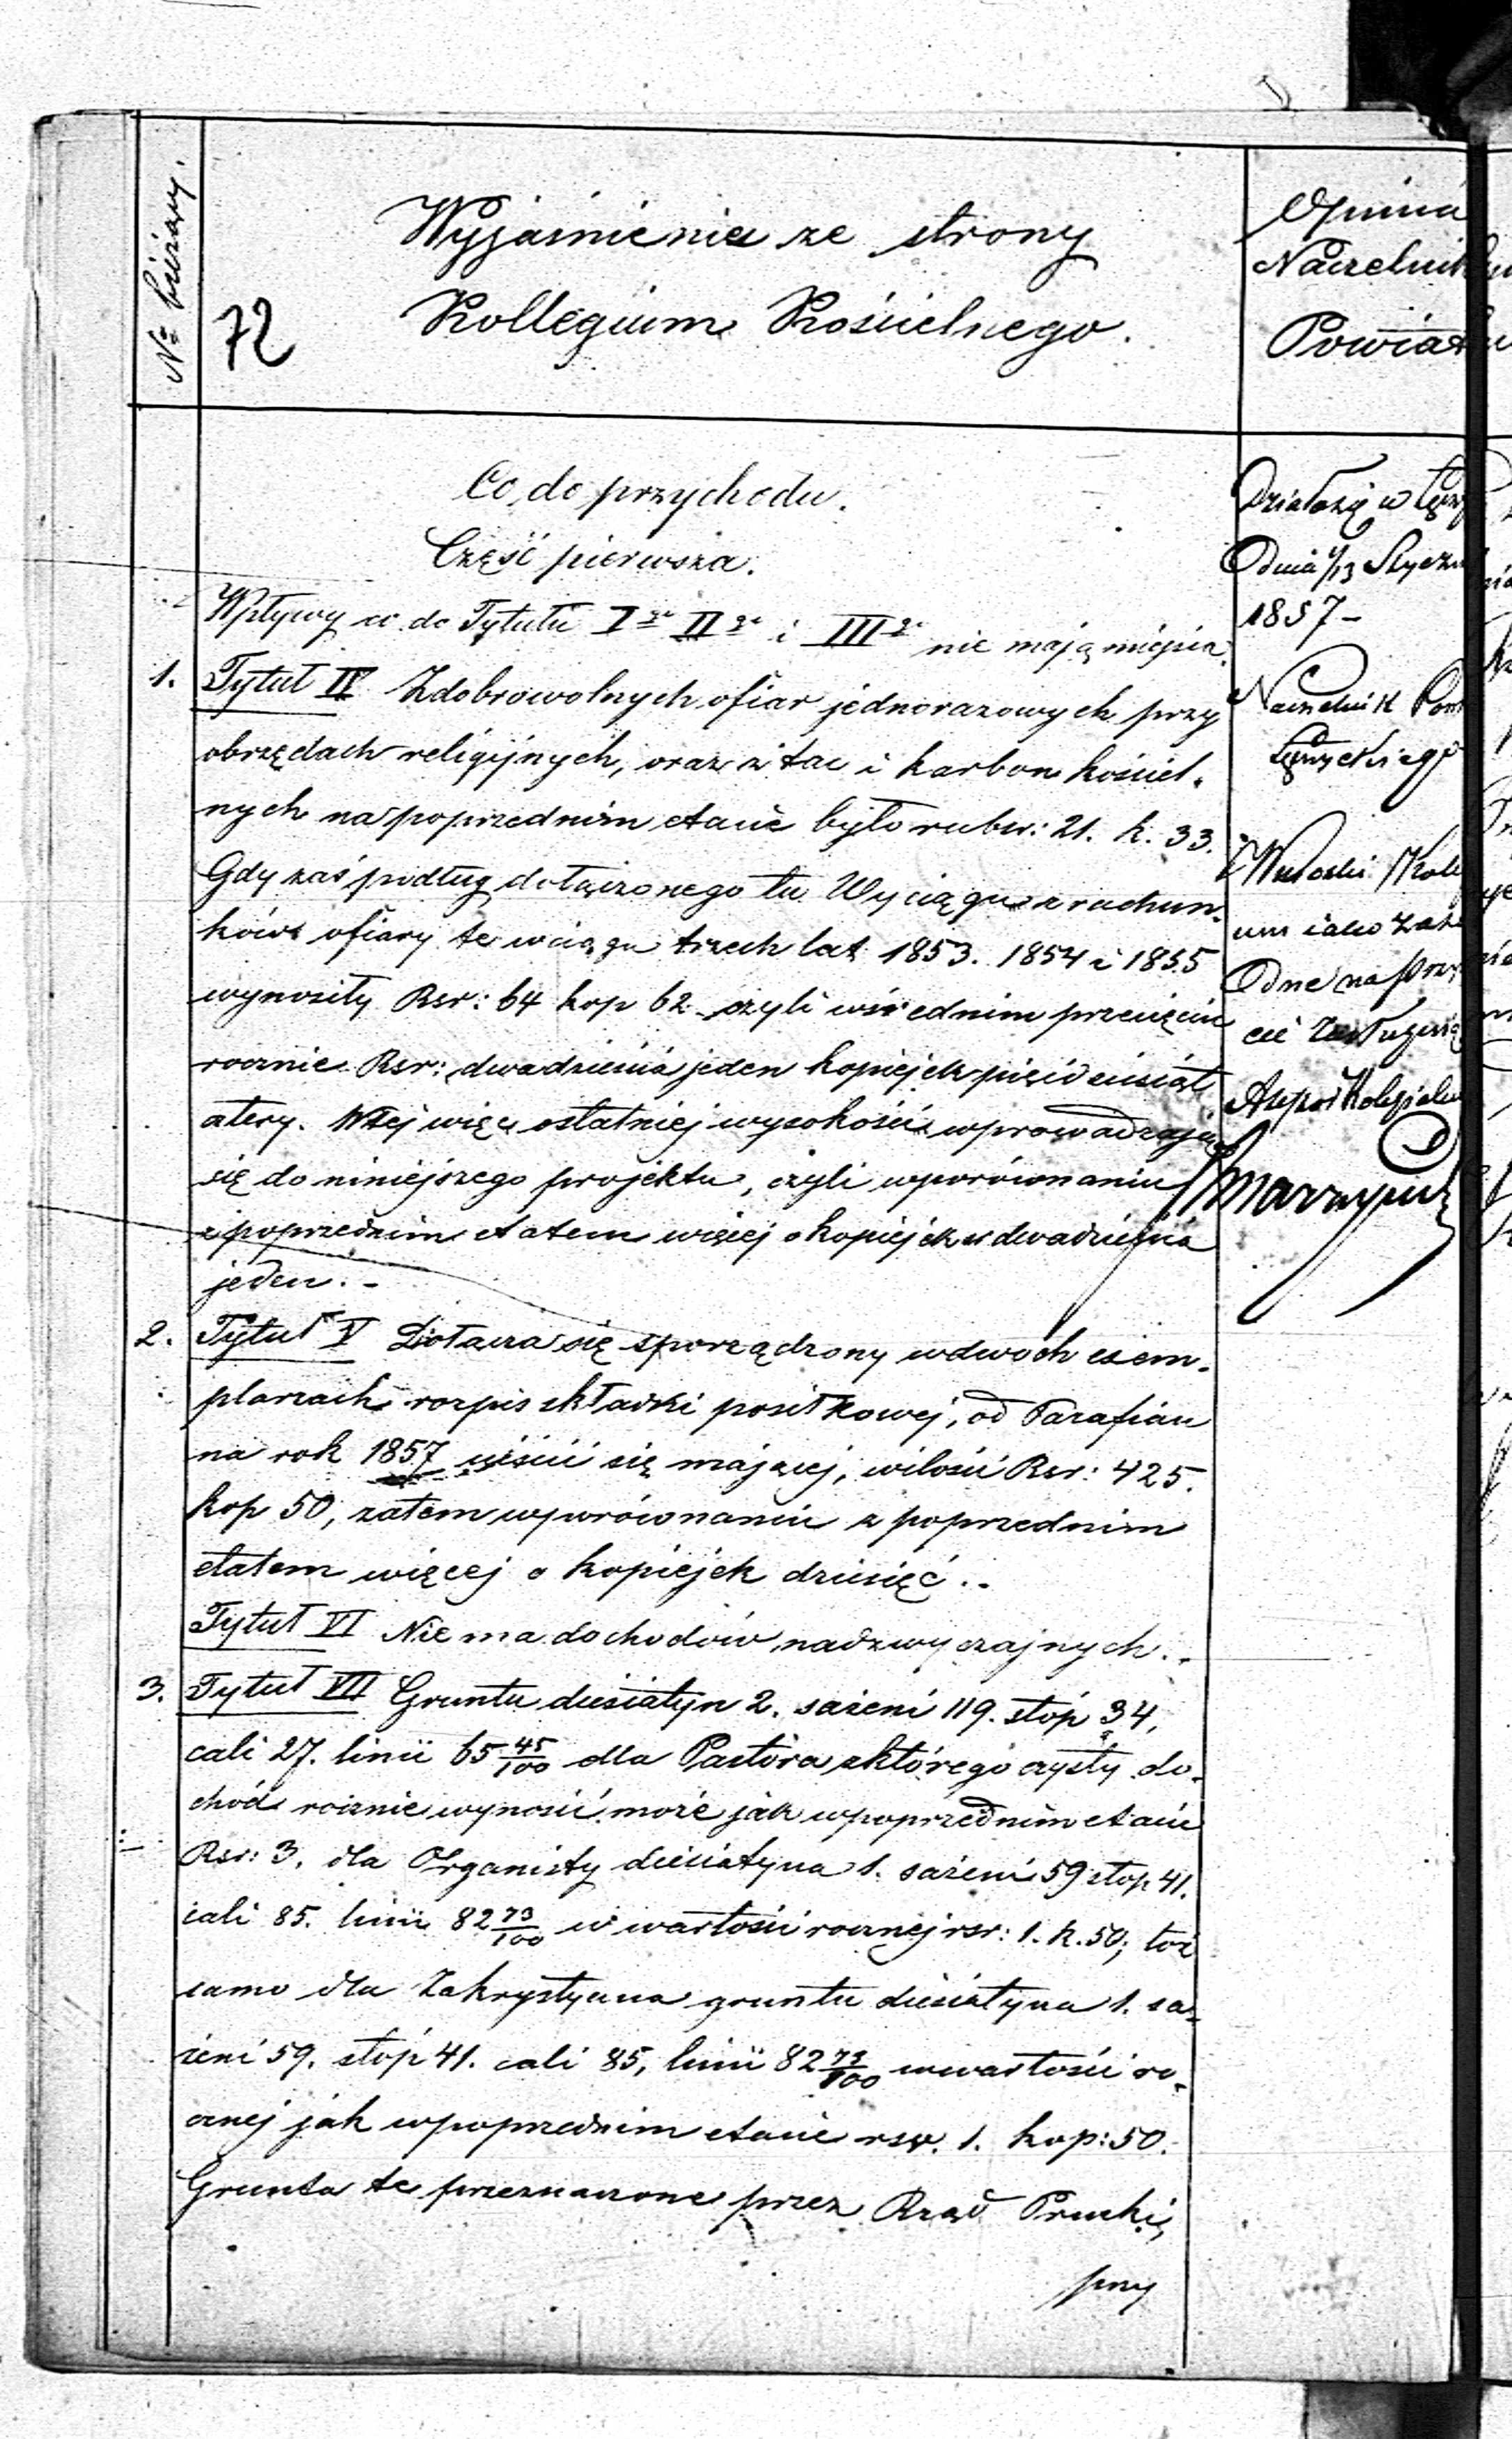 № bieżący.
72
Wyjaśnienie ze strony
Kollegium Kościelnego.
Co do przychodu.
Część pierwsza.
Wpływy co do Tytułu I go II go i III go nie mają miejsca.
1. Tytuł IV Z dobrowolnych ofiar jednorazowych przy
obrzędach religijnych, oraz z tac i karbon kościel-
nych na poprzednim etacie było rubsr: 21. k. 33.
Gdy zaś podług dołączonego tu Wyciągu z rachun-
ków ofiary te wciągu trzech lat 1853. 1854 i 1855
wynosiły Rsr: 64 kop 62 czyli wśrednim przecięciu
rocznie Rsr: dwadzieścia jeden kopiejek pięćdziesiąt
cztery. Wtej więc ostatniej wysokości wprowadzają
się do niniejszego projektu, czyli wporównaniu
z poprzednim etatem więcej o kopiejek dwadzieścia
jeden. -
2. Tytuł V Dołącza się sporządzony wdwóch exem-
plarzach rozpis składki posiłkowej, od Parafian
na rok 1857 uiścić się mającej, wilości Rsr: 425.
kop 50, zatem wporównaniu z poprzednim
etatem więcej o kopiejek dziesięć. -
Tytuł VI Nie ma dochodów nadzwyczajnych. -
3. Tytuł VII Gruntu diesiatyn 2. sażeni 119. stóp 34,
cali 27. linii 65 45/100 dla Pastora zktórego czysty do-
chód rocznie wynosić może jak wpoprzednim etacie
Rsr: 3. dla Organisty diesiatyna 1. sażeni 59 stóp 41.
cali 85. linii 82 73/100 w wartości rocznej rsr: 1. k. 50; toż
samo dla Zakrystyana gruntu diesiatyna 1. sa-
żeni 59. stóp 41. cali 85, linii 82 73/100 wwartości ro-
cznej jak wpoprzednim etacie rsr. 1. kop: 50.
Grunta te przeznaczone przez Rząd Pruski,
przy
Opinia
Naczelnika
Powiatu
Działo się w
Dnia 1/13 Styczn
1857 -
Naczelnik Pow
Łęczyckiego
Wnioski Kole
um iako
na